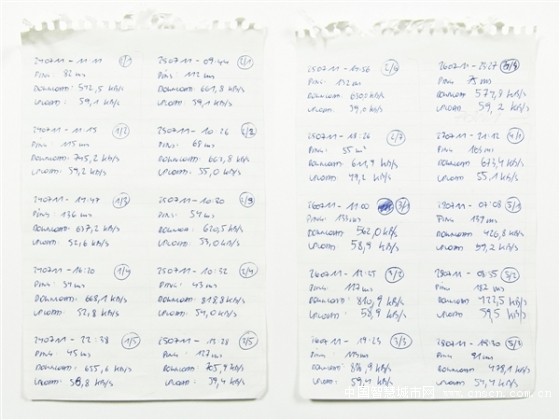 240711 - 11:11 1/1
PING: 82 ms
DOWNLOAD: 592,5 kB/s
UPLOAD: 59,1 kB/s
240711 - 11:15 1/2
PING: 115 ms
DOWNLOAD: 705,2 kB/s
UPLOAD: 59,2 kB/s
240711 - 11:47 1/3
PING: 136 ms
DOWNLOAD: 677,2 kB/s
UPLOAD: 52,6 kB/s
240711 - 16:20 1/4
PING: 51 ms
DOWNLOAD: 668,1 kB/s
UPLOAD: 52,8 kB/s
240711 - 22:38 1/5
PING: 45 ms
DOWNLOAD: 655,6 kB/s
UPLOAD: 58,8 kB/s
250711 - 09:44 2/1
PING: 112 ms
DOWNLOAD: 661,8 kB/s
UPLOAD: 59,1 kB/s
250711 - 10:26
PING: 68 ms
DOWNLOAD: 667,8 kB/s
UPLOAD: 55,0 kB/s
250711 - 10:30
PING: 54 ms
DOWNLOAD: 620,5 kB/s
UPLOAD: 53,0 kB/s
250711 - 10:52 2/4
PING: 43 ms
DOWNLOAD: 818,8 kB/s
UPLOAD: 54,0 kB/s
250711 - 13:28 2/5
PING: 127 ms
DOWNLOAD: 705,9 kB/s
UPLOAD: 39,4 kB/s
250711 - 2/6
PING: 132 ms
DOWNLOAD: kB/s
UPLOAD: 39,0 kB/s
250711 - 18:26 2/7
PING: 55 ms
DOWNLOAD: 611,9 kB/s
UPLOAD: 49,2 kB/s
260711 - 11:00 3/1
PING: 133 ms
DOWNLOAD: 562,0 kB/s
UPLOAD: 58,9 kB/s
260711 - 13:25 3/2
PING: 117 ms
DOWNLOAD: 810,9 kB/s
UPLOAD: 58,9 kB/s
260711 - 19:23 3/3
PING: ms
DOWNLOAD: 818,9 kB/s
UPLOAD: 59,4 kB/s
260711 - 21:27
PING: 75 ms
DOWNLOAD: 577,8 kB/s
UPLOAD: 59,2 kB/s
270711 - 21:12 4/1
PING: 103 ms
DOWNLOAD: 673,4 kB/s
UPLOAD: 55,1 kB/s
07:08 5/1
PING: 137 ms
DOWNLOAD: 426,8 kB/s
UPLOAD: 59,2 kB/s
280711 - 08:55 5/2
PING: 182 ms
DOWNLOAD: kB/s
UPLOAD: 59,5 kB/s
280711 -
PING: 91 ms
DOWNLOAD: kB/s
UPLOAD: 59,4 kB/s
中国智慧城市网